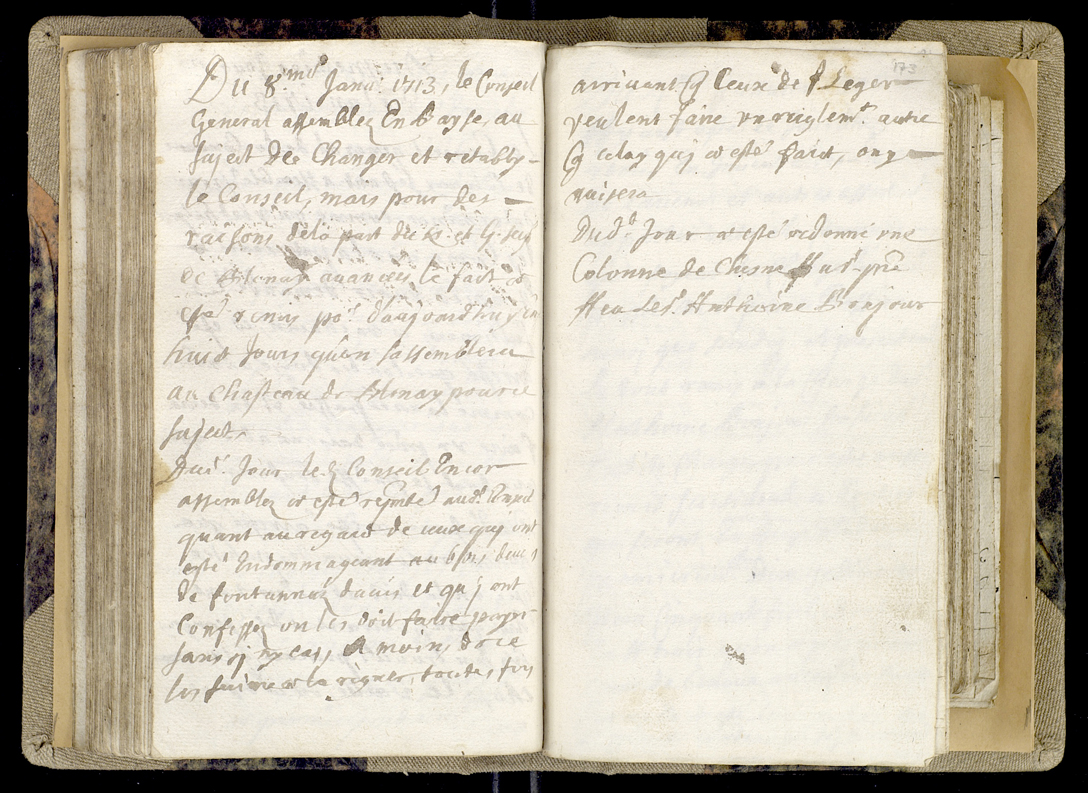 Du 8.me Janv. 1713, le Conseil
General assemblez En Bayse, au
suject de Changer et restably-
le Conseil, mais pour des
raisons dela part du
de Blonay avancées le fait a
esté remis po.r d'aujourdhuy en
huict Jours qu'on s'assemblera
au Chasteau de Blonay pour ce
suject.
Dud.t Jour led Conseil Encor
assemblez a esté aud.t Conseil
quant au regard de ceux quj ont
esté Endommageant au bois
de fontannaz et quj ont
Confessez on les doit faire payer
sans moins
les suivre a la rigueur, toutes fois
173
arrivant q Ceux de St Leger
veulent faire un riglem.t autre
q celuy quj a esté faict, on y
avisera
Dud.t Jour a esté ordonné une
Colonne de Chesne
Anthoine Bonjour